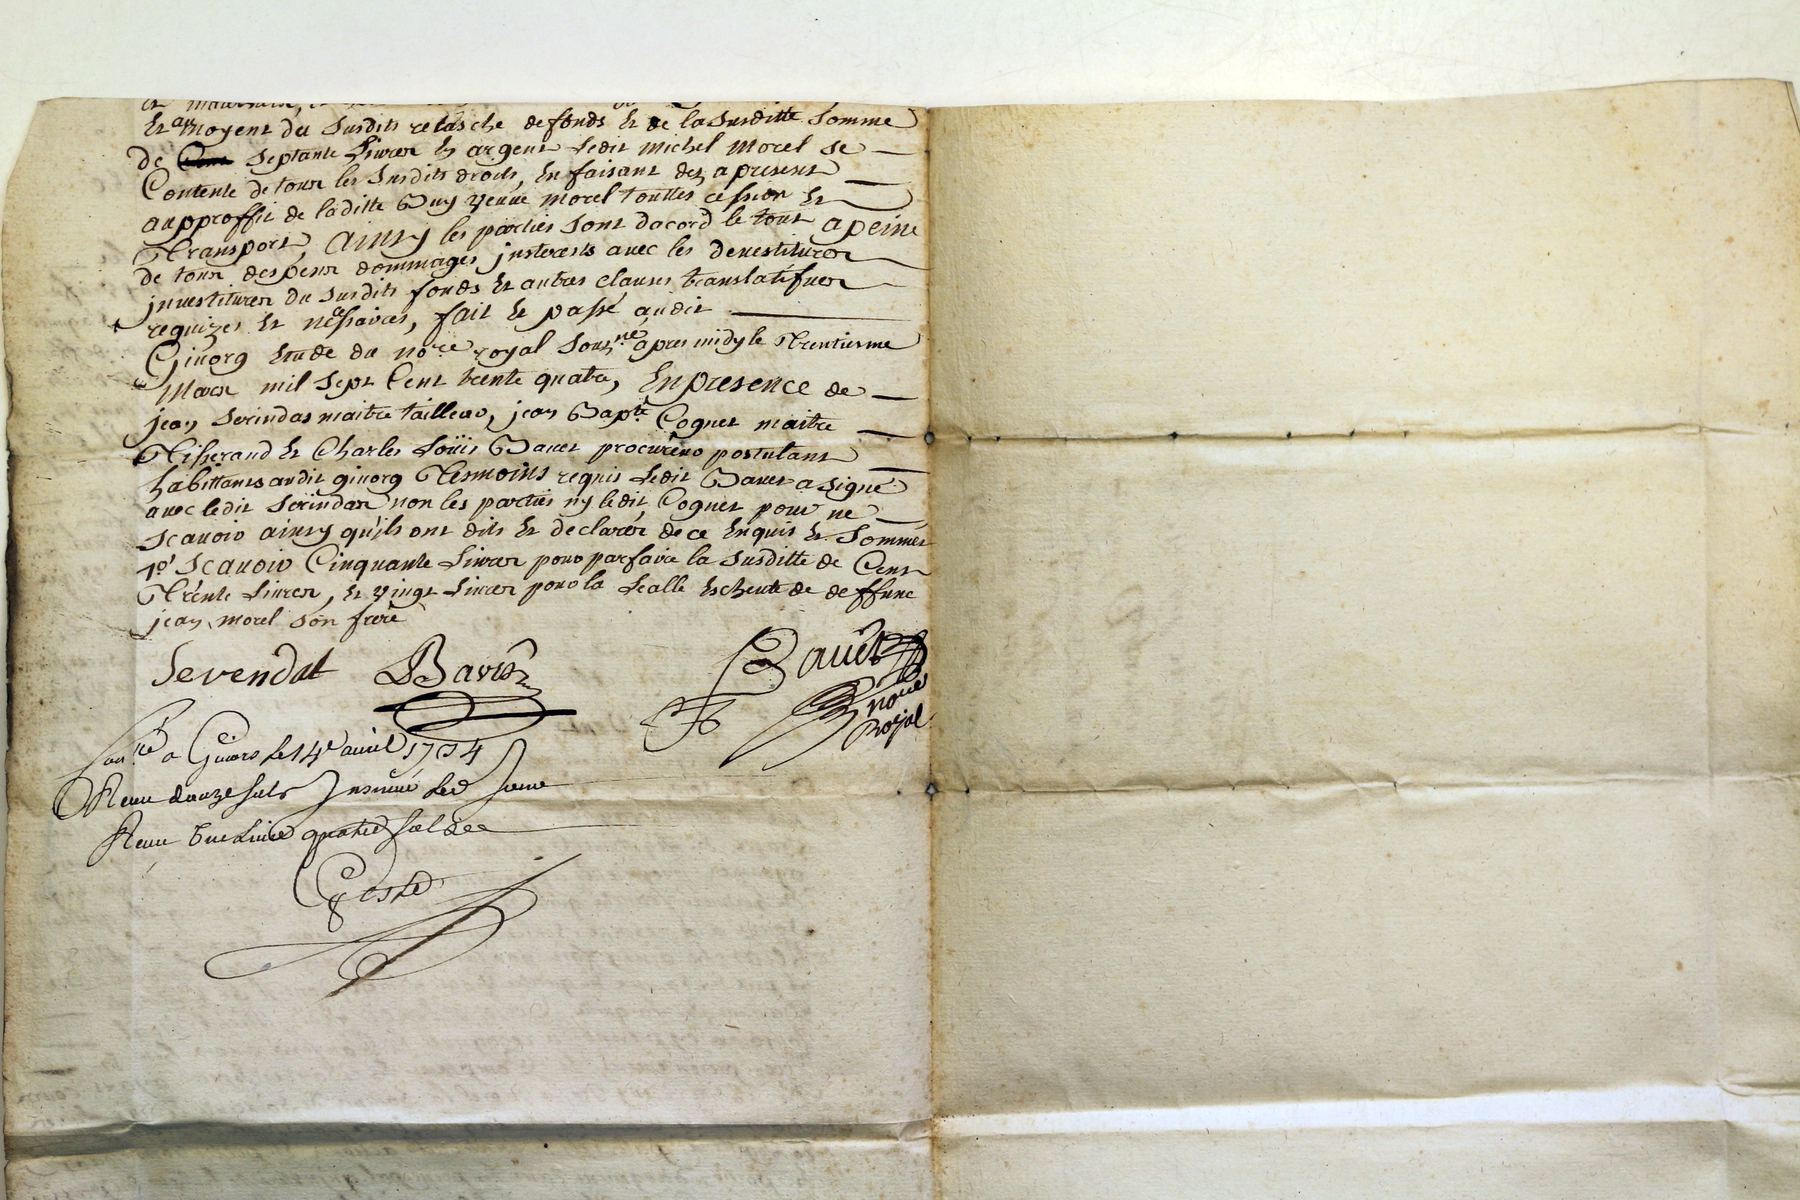 et moyent du susdits relasche de fonds et de la susditte somme
de septante livres en argent ledit michel morel se
contente de tous les susdits droits, en faisant dez a present
au proffit de laditte Guy veuve morel touttes cession et
transport, ainsy les parties sont dacord le tout a peine
de tous despens dommages jnterests avec les devestitures
jnvestitures du susdits fonds et autres clauses translatifves
requizes et nécessaires, fait et passé audit
Givorg étude du nore royal sousné apres midy le trentiesme
Mars mil sept cent trente quatre, En presence de
jean Serindas maitre tailleur, jean Bapte Cognet maitre
Tisserand et Charles Loüis Bavet procureur postulant
habittants audit givorg tesmoins requis ledit Bavet a signé
avec ledit Serindas non les parties ny ledit Cognet pour ne
scavoir ainsy qu'ils ont dits et declarés de ce enquis et sommes
scavoir Cinquante livres pour parfaire la susditte de Cent
Trente livres, et vingt livres pour la escheute de deffunt
jean morel son frere
Sevendat Bavet Bavet
nore
Royal
a Givors le 14e avril 1734
Receu douze sols Jnsinué led jour
Receu une livre quatre sols